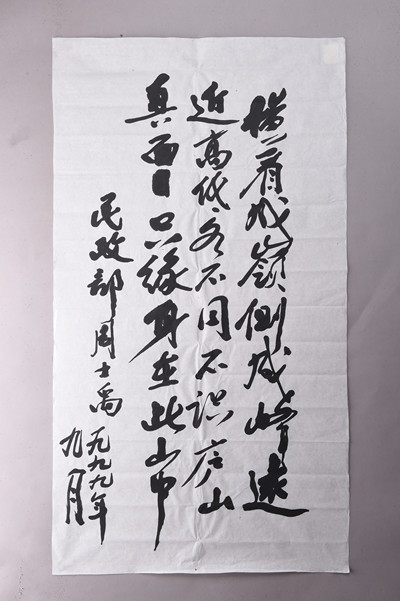 横看成嶺側成峰遠
近高低各不同不识庐山
真面目只缘身在此山中
民政部周士禹
一九九九年
九月